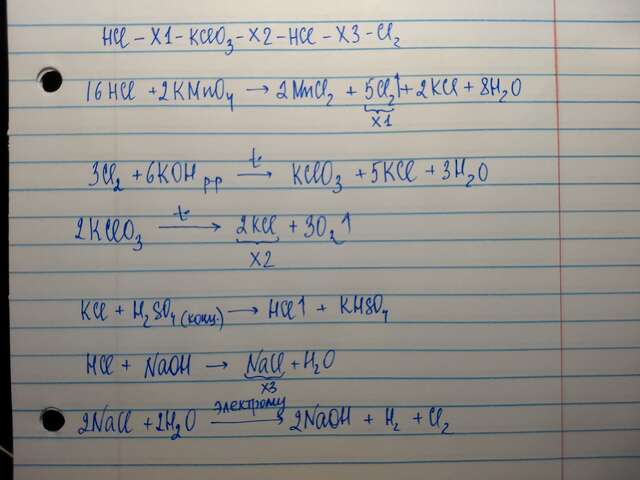 HCl - X1 - KClO₃ - X2 - HCl - X3 - Cl₂
16HCl + 2KMnO₄ → 2MnCl₂ + 5Cl₂↑ + 2KCl + 8H₂O
X1
t
3Cl₂ + 6KOH р-р → KClO₃ + 5KCl + 3H₂O
t
2KClO₃ → 2KCl + 3O₂↑
X2
KCl + H₂SO₄ (конц.) → HCl↑ + KHSO₄
HCl + NaOH → NaCl + H₂O
X3
электролиз
2NaCl + 2H₂O → 2NaOH + H₂ + Cl₂